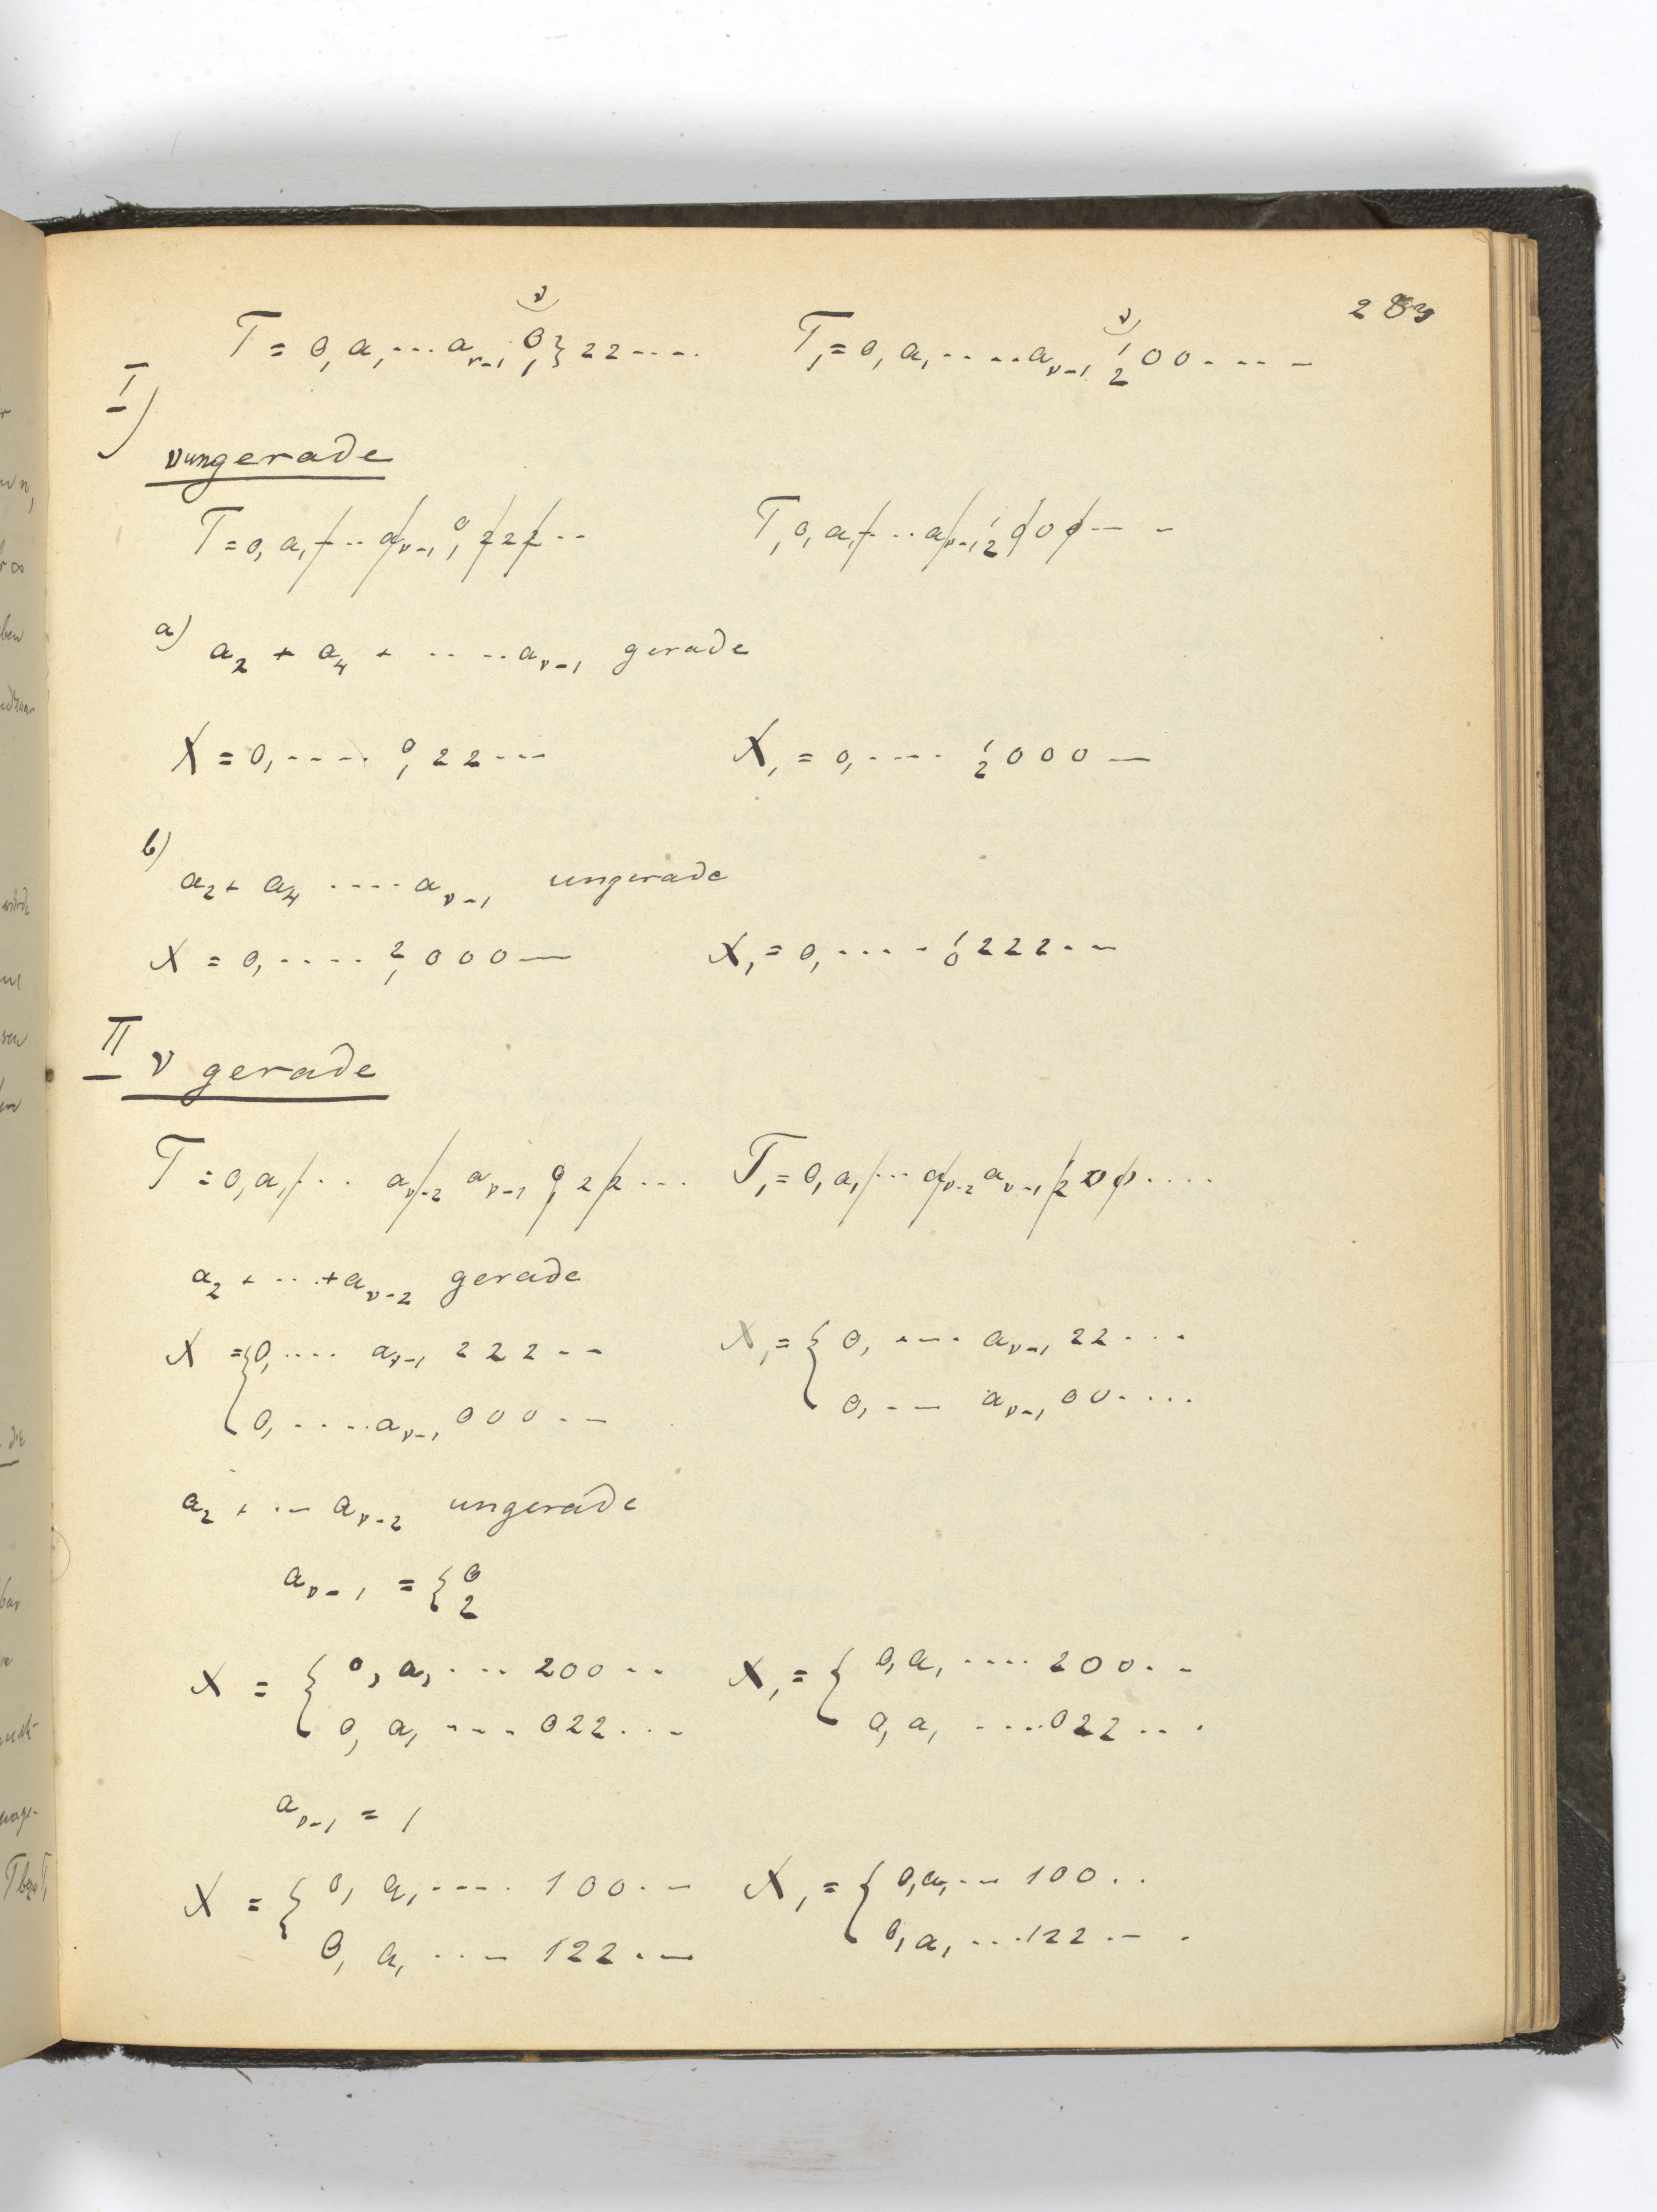 283
T = 0, a₁ ... a_{ν-1} 0/1 } 22 .... T₁ = 0, a₁ ..... a_{ν-1} 1/2 00 ....
I)
ν ungerade
T = 0, a₁/ .. a/_{ν-1} 0/1 2/22/ .. T₁ 0, a₁/ ... a/_{ν-1} 1/2 0/00/ ..
a) a₂ + a₄ + ..... a_{ν-1} gerade
X = 0, ..... 0/1 22 ... X₁ = 0, .... 1/2 000 —
b) a₂ + a₄ .... a_{ν-1} ungerade
X = 0, .... 2/1 000 — X₁ = 0, .... 1/0 222 ..
II ν gerade
T = 0, a₁/ .. a/_{ν-2} a_{ν-1} 0/1 / 22/ ... T₁ = 0, a₁/ ... a/_{ν-2} a_{ν-1} 1/2 / 00/ ....
a₂ + ... + a_{ν-2} gerade
X = { 0, .... a_{ν-1} 222 .. X₁ = { 0, .... a_{ν-1} 22 ...
0, .... a_{ν-1} 000 .. 0, ... a_{ν-1} 00 ....
a₂ + ... a_{ν-2} ungerade
a_{ν-1} = { 0
2
X = { 0, a₁ .... 200 .. X₁ = { 0, a₁ .... 200 ..
0, a₁ .... 022 ... 0, a₁ .... 022 ...
a_{ν-1} = 1
X = { 0, a₁ .... 100 .. X₁ = { 0, a₁ ... 100 ..
0, a₁ ... 122 .. 0, a₁ ... 122 ..